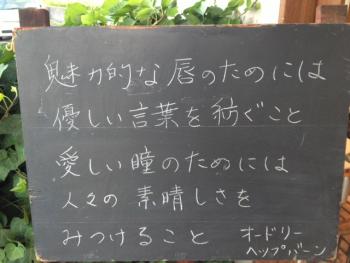 魅力的な唇のためには
優しい言葉を紡ぐこと
愛しい瞳のためには
人々の素晴しさを
みつけること
オードリー
ヘップバーン